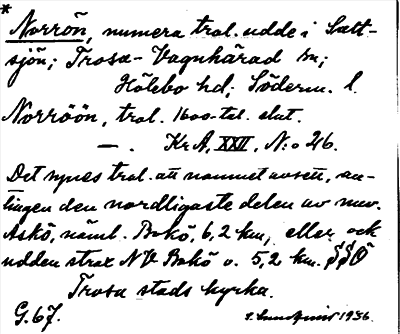 *
Norrön, numera trol. udde i Salt-
sjön; Trosa-Vagnhärad sn;
Hölebo hd; Söderm. l.
Norröön, trol. 1600-tal. slut.
— . Kr A, XXII, N:o 26.
Det synes trol. att namnet avsett, an-
tingen den nordligaste delen av nuv.
Askö, näml. Bokö, 6,2 km, eller ock
udden strax NV Bokö o. 5,2 km. SSO
Trosa stads kyrka.
G. 67. 1936.